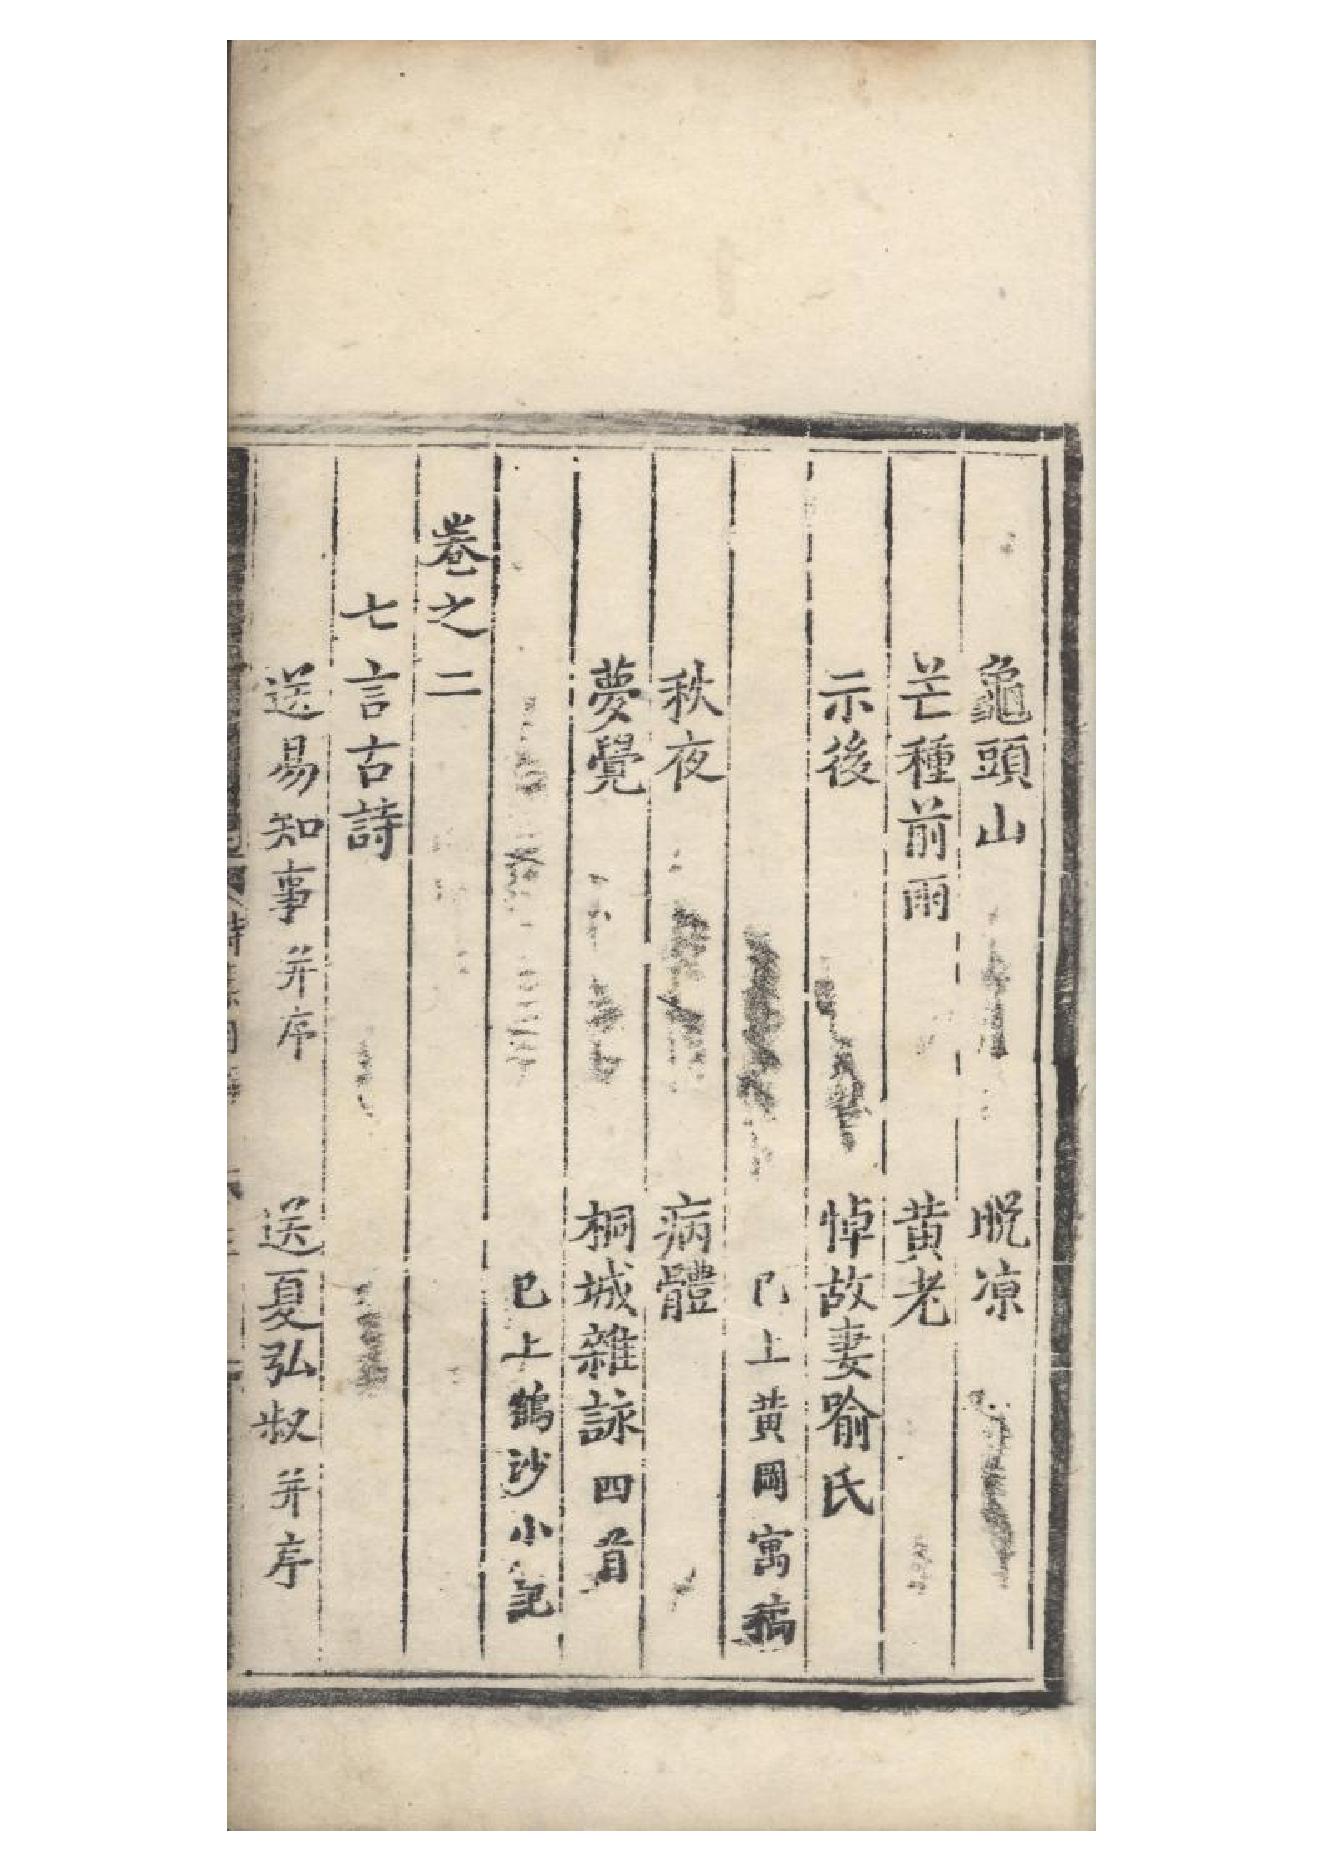 龜頭山　脱凉
芒種前雨　黄老
示後　悼故妻喻氏
已上黄岡寓稿
秋夜　病體
夢覺　桐城雜詠四首
已上鶴沙小記
卷之二
七言古詩
送易知事并序　送夏弘叔并序